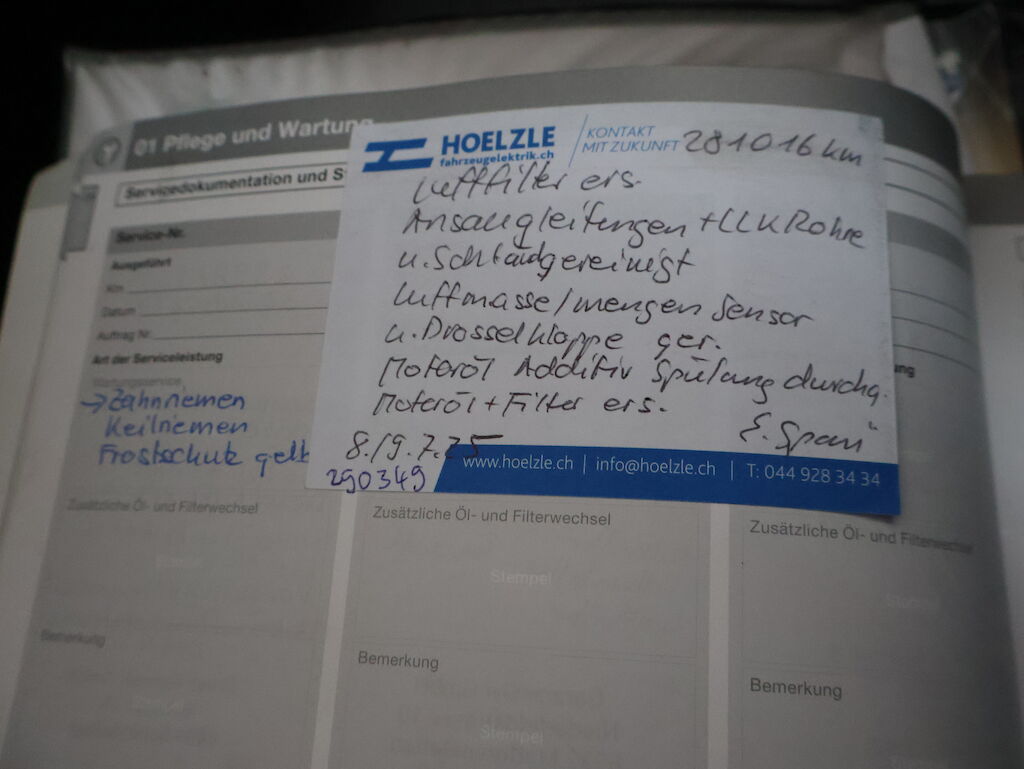 01 Pflege und Wartung
Servicedokumentation und S
Service-Nr.
Ausgeführt
Km
Datum
Auftrag Nr.
Art der Serviceleistung
Wartungsservice
→ Zahnriemen
Keilriemen
Frostschutz gelb
HOELZLE
fahrzeugelektrik.ch
KONTAKT
MIT ZUKUNFT
281016 km
Luftfilter ers.
Ansaugleitungen + LLK Rohre
u. Schlauch gereinigt
Luftmasse/mengen Sensor
u. Drosselklappe ger.
Motoröl Additiv Spülung durchg.
Motoröl + Filter ers.
8./9.7.25
290349
www.hoelzle.ch | info@hoelzle.ch | T: 044 928 34 34
ung
Zusätzliche Öl- und Filterwechsel
Stempel
Bemerkung
Stempel
Zusätzliche Öl- und Filterwechsel
Stempel
Bemerkung
Stempel
Zusätzliche Öl- und Filterwechsel
Stempel
Bemerkung
Stempel